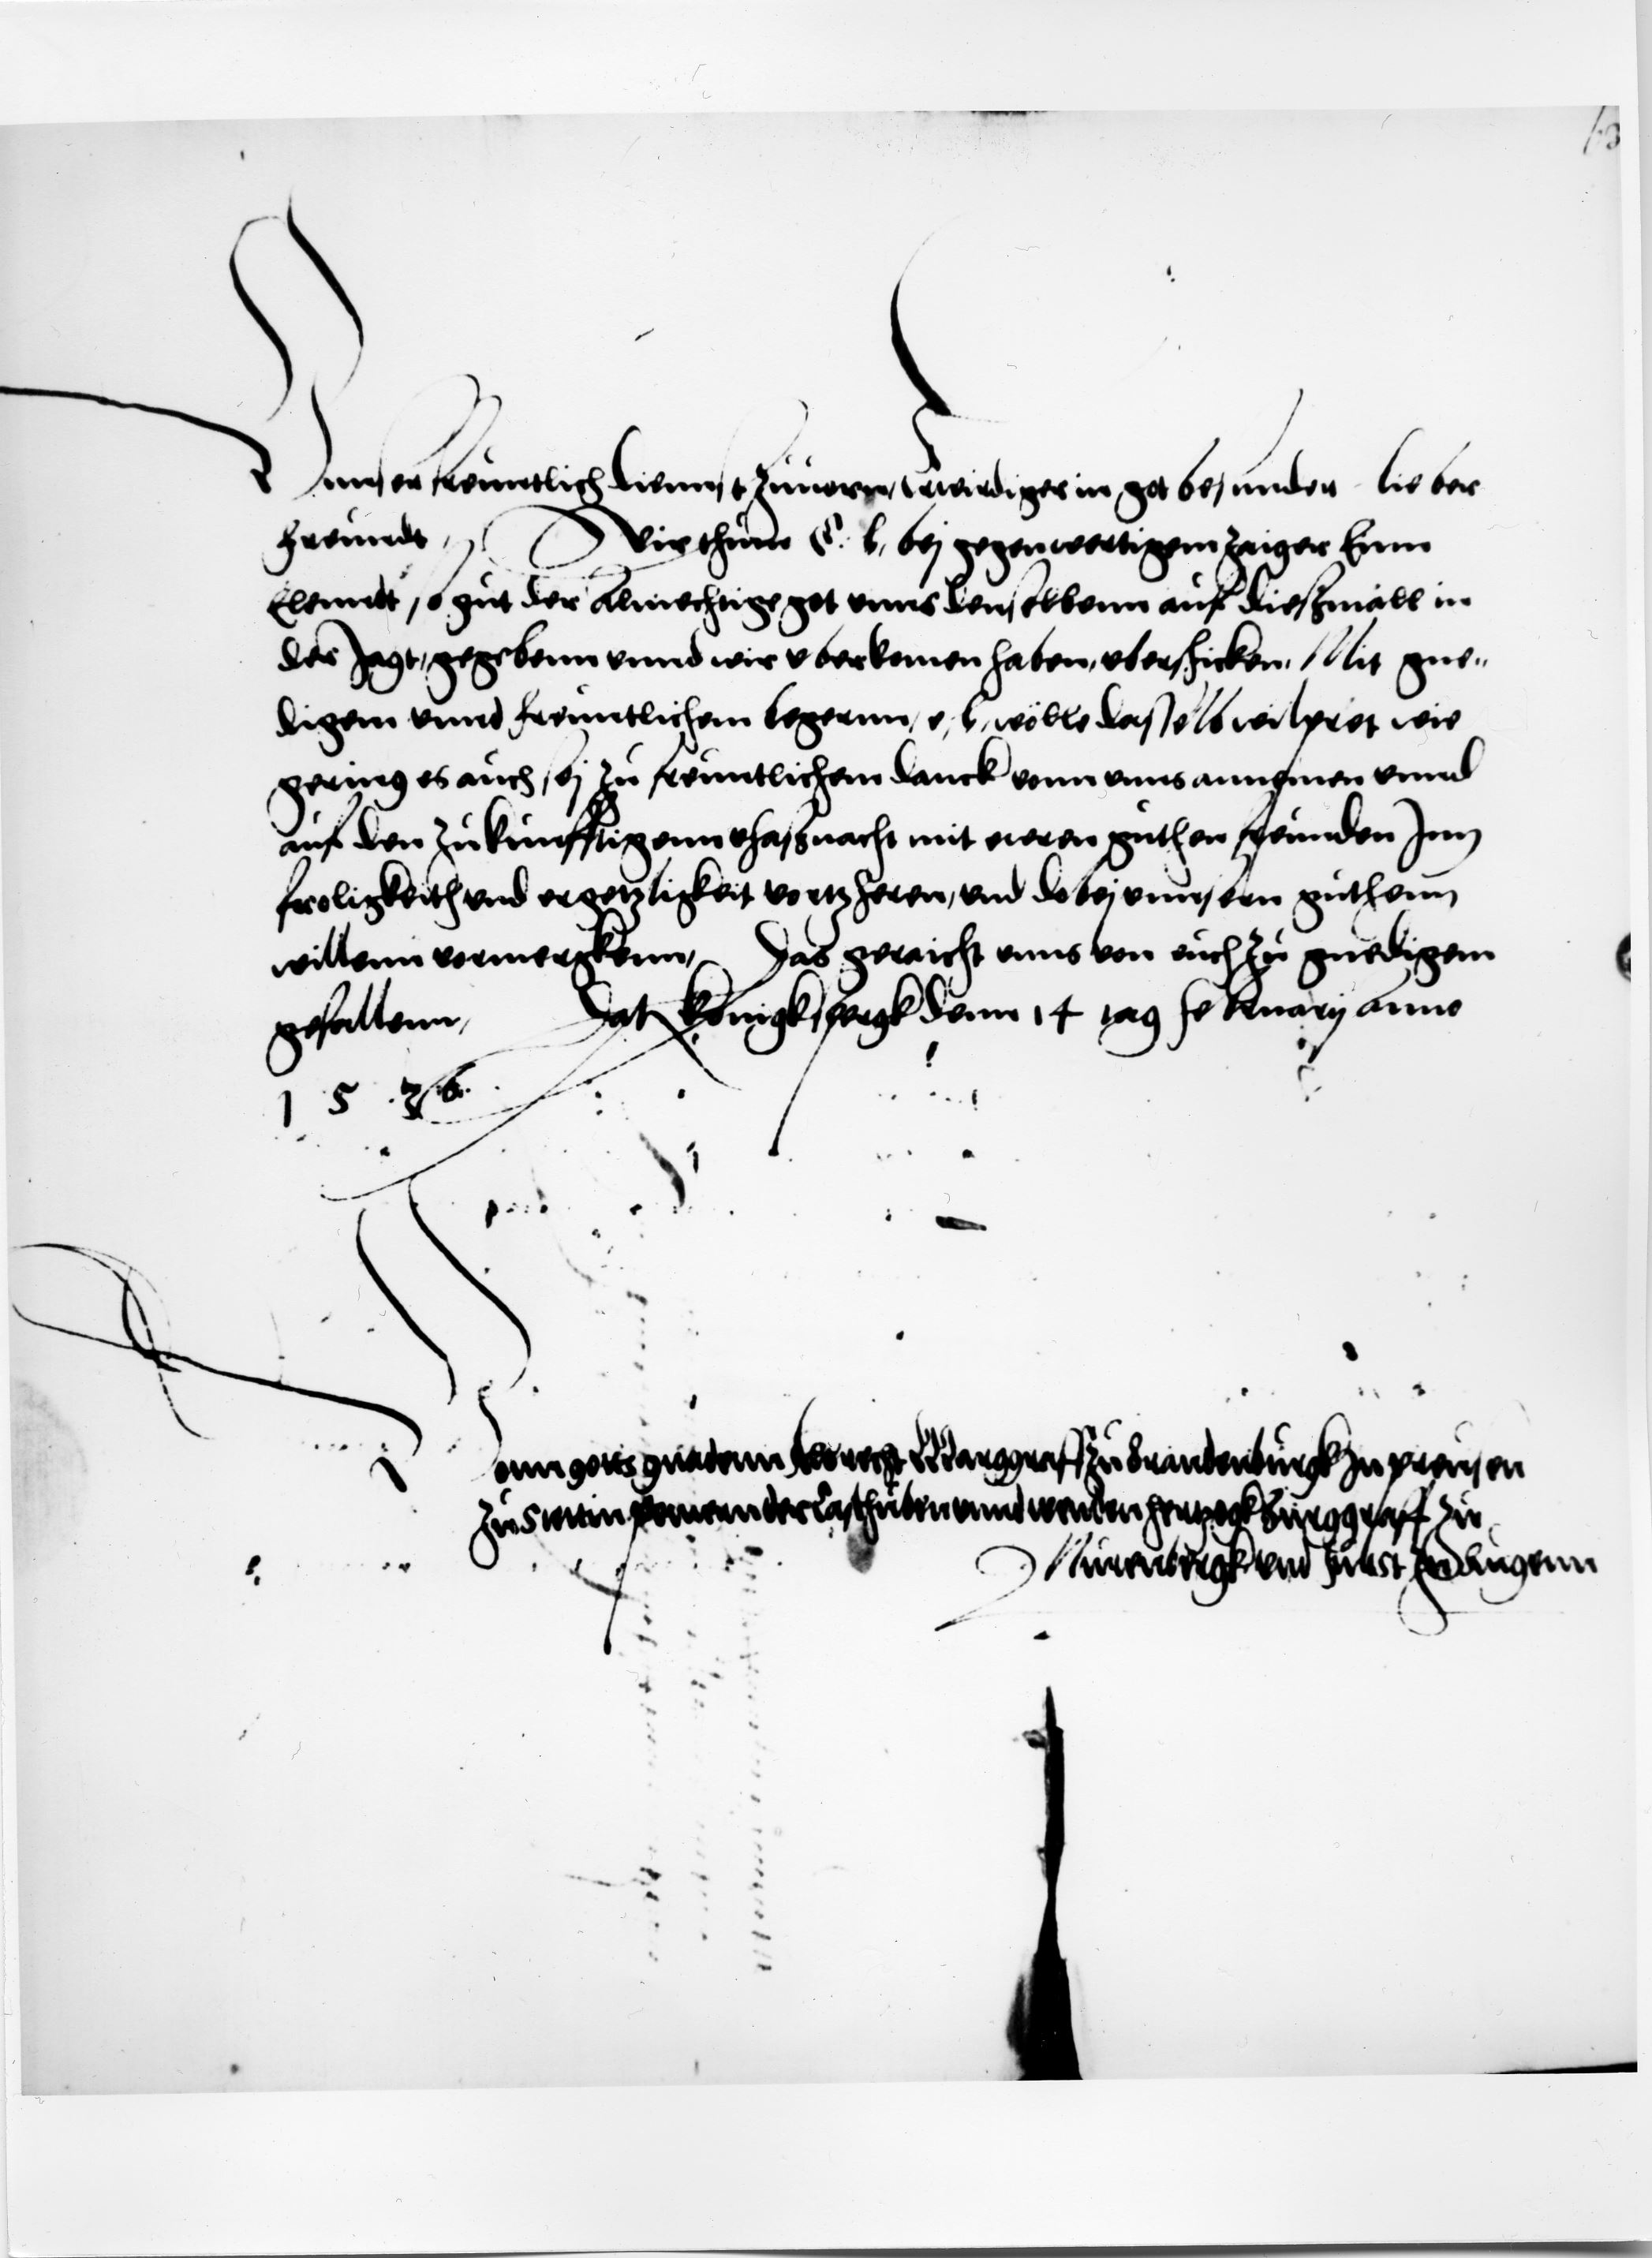 Vnnser freuntlich diennst zuuorn, Erwirdiger in got besunder lieber
freundt, Wir thun E. l. bej gegenwertigem zaiger Einn
Elenndt, so gut der Almechtige got vnns denselbenn auff dießmall in
der Jagt, gegebenn vnnd wir vberkomen haben, vberschicken. Mit gne„
digem vnnd freuntlichem begernn, e. l. wölle dasselb wilpret wie
gering es auch sej zu freuntlichem danck vonn vnns annemen vnnd
auf den zukunfftigenn vhaßnacht mit eweren guthen freunden Inn
froligkeith vnd ergetzligkeit vortzheren, vnd dobej vnnsern guthenn
willenn vormergkenn, Das geraicht vnns von euch zu gnedigem
gefallenn, Dat Königkspergk denn 14 tag february anno
1 5 3 6.
Vonn gotts gnadenn Albrecht Marggraff zu Brandenburgk Jn preusen
zu Stettin pomern der Casshuben vnnd wenden hertzogk Burggraff zu
Nurenbergk vnd furst zu Rugenn